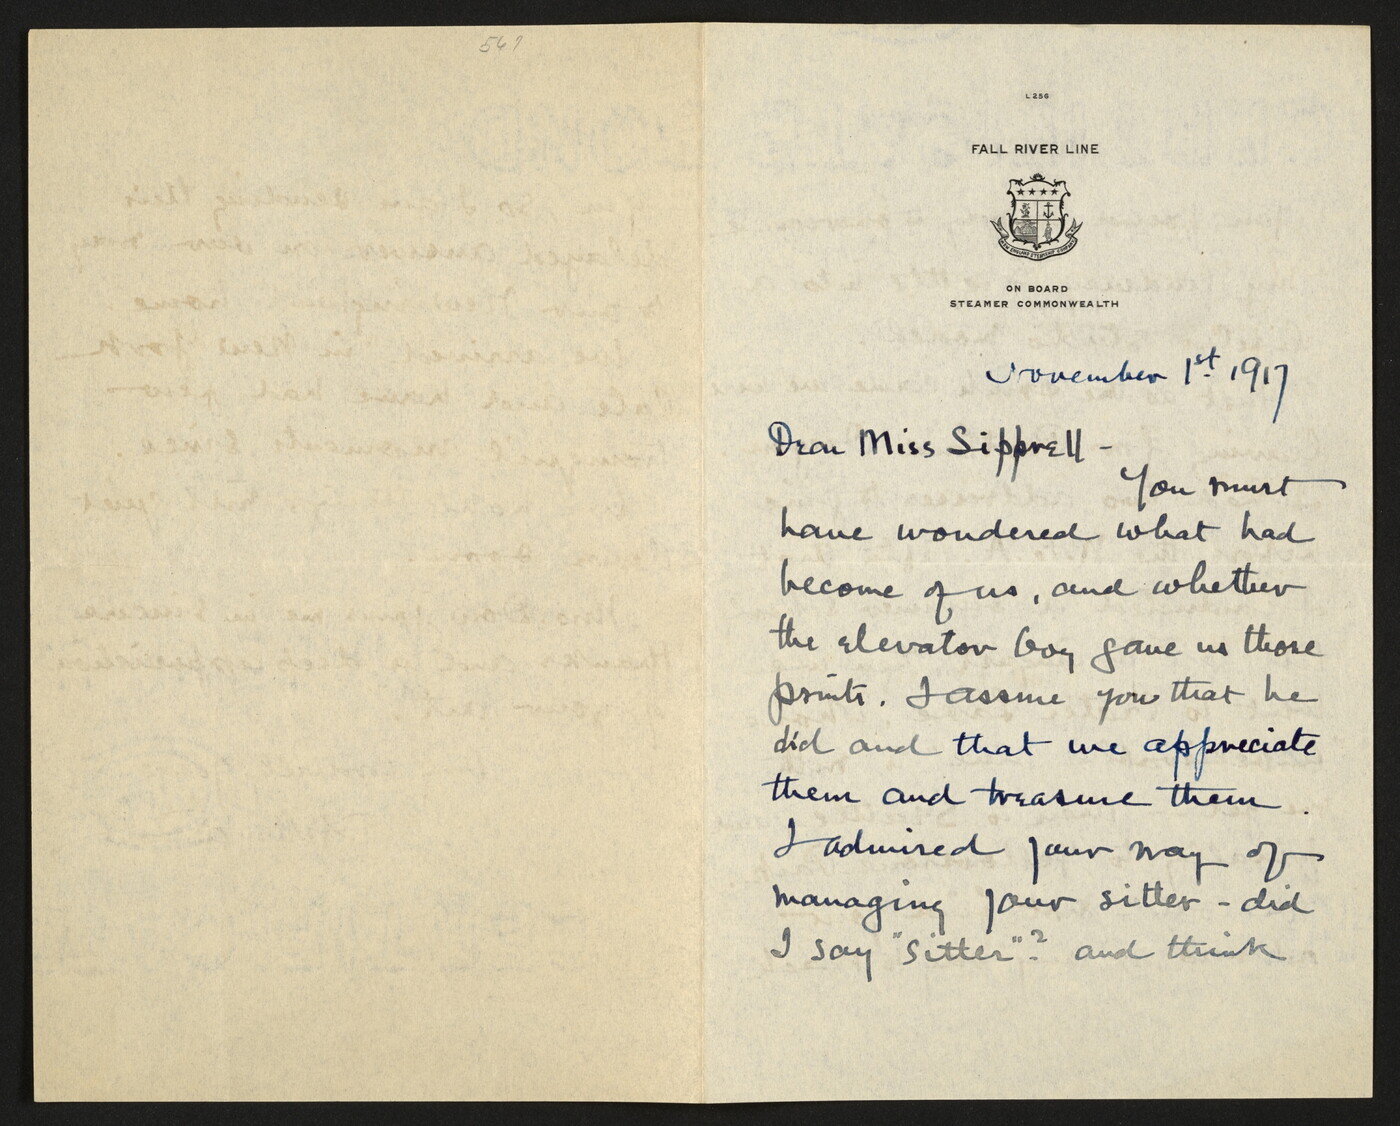 567
L 256
FALL RIVER LINE
NEW ENGLAND STEAMSHIP COMPANY
ON BOARD
STEAMER COMMONWEALTH
November 1st. 1917
Dear Miss Sipprell -
You must
have wondered what had
become of us, and whether
the elevator boy gave us those
prints. I assure you that he
did and that we appreciate
them and treasure them.
I admired your way of
managing your sitter - did
I say "sitter"? and think